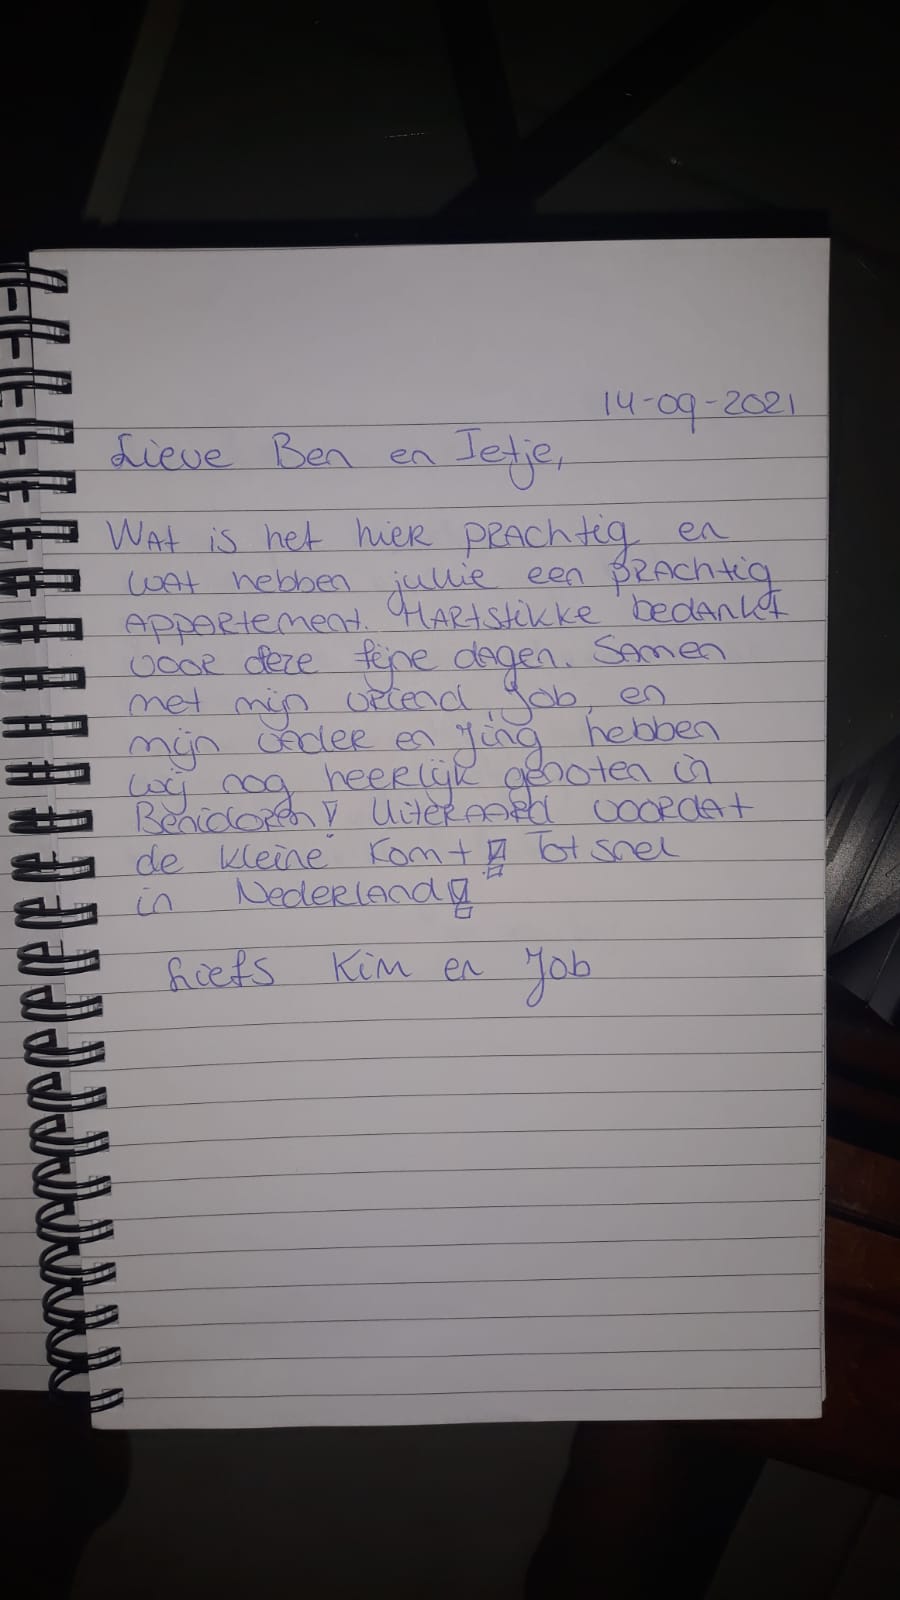 14-09-2021
Lieve Ben en Ietje,
Wat is het hier prachtig en
wat hebben jullie een prachtig
appartement. Hartstikke bedankt
voor deze fijne dagen. Samen
met mijn vriend, Job, en
mijn vader en Jing hebben
wij nog heerlijk genoten in
Benidorm! Uiteraard voordat
de kleine komt! Tot snel
in Nederland!
Liefs Kim en Job